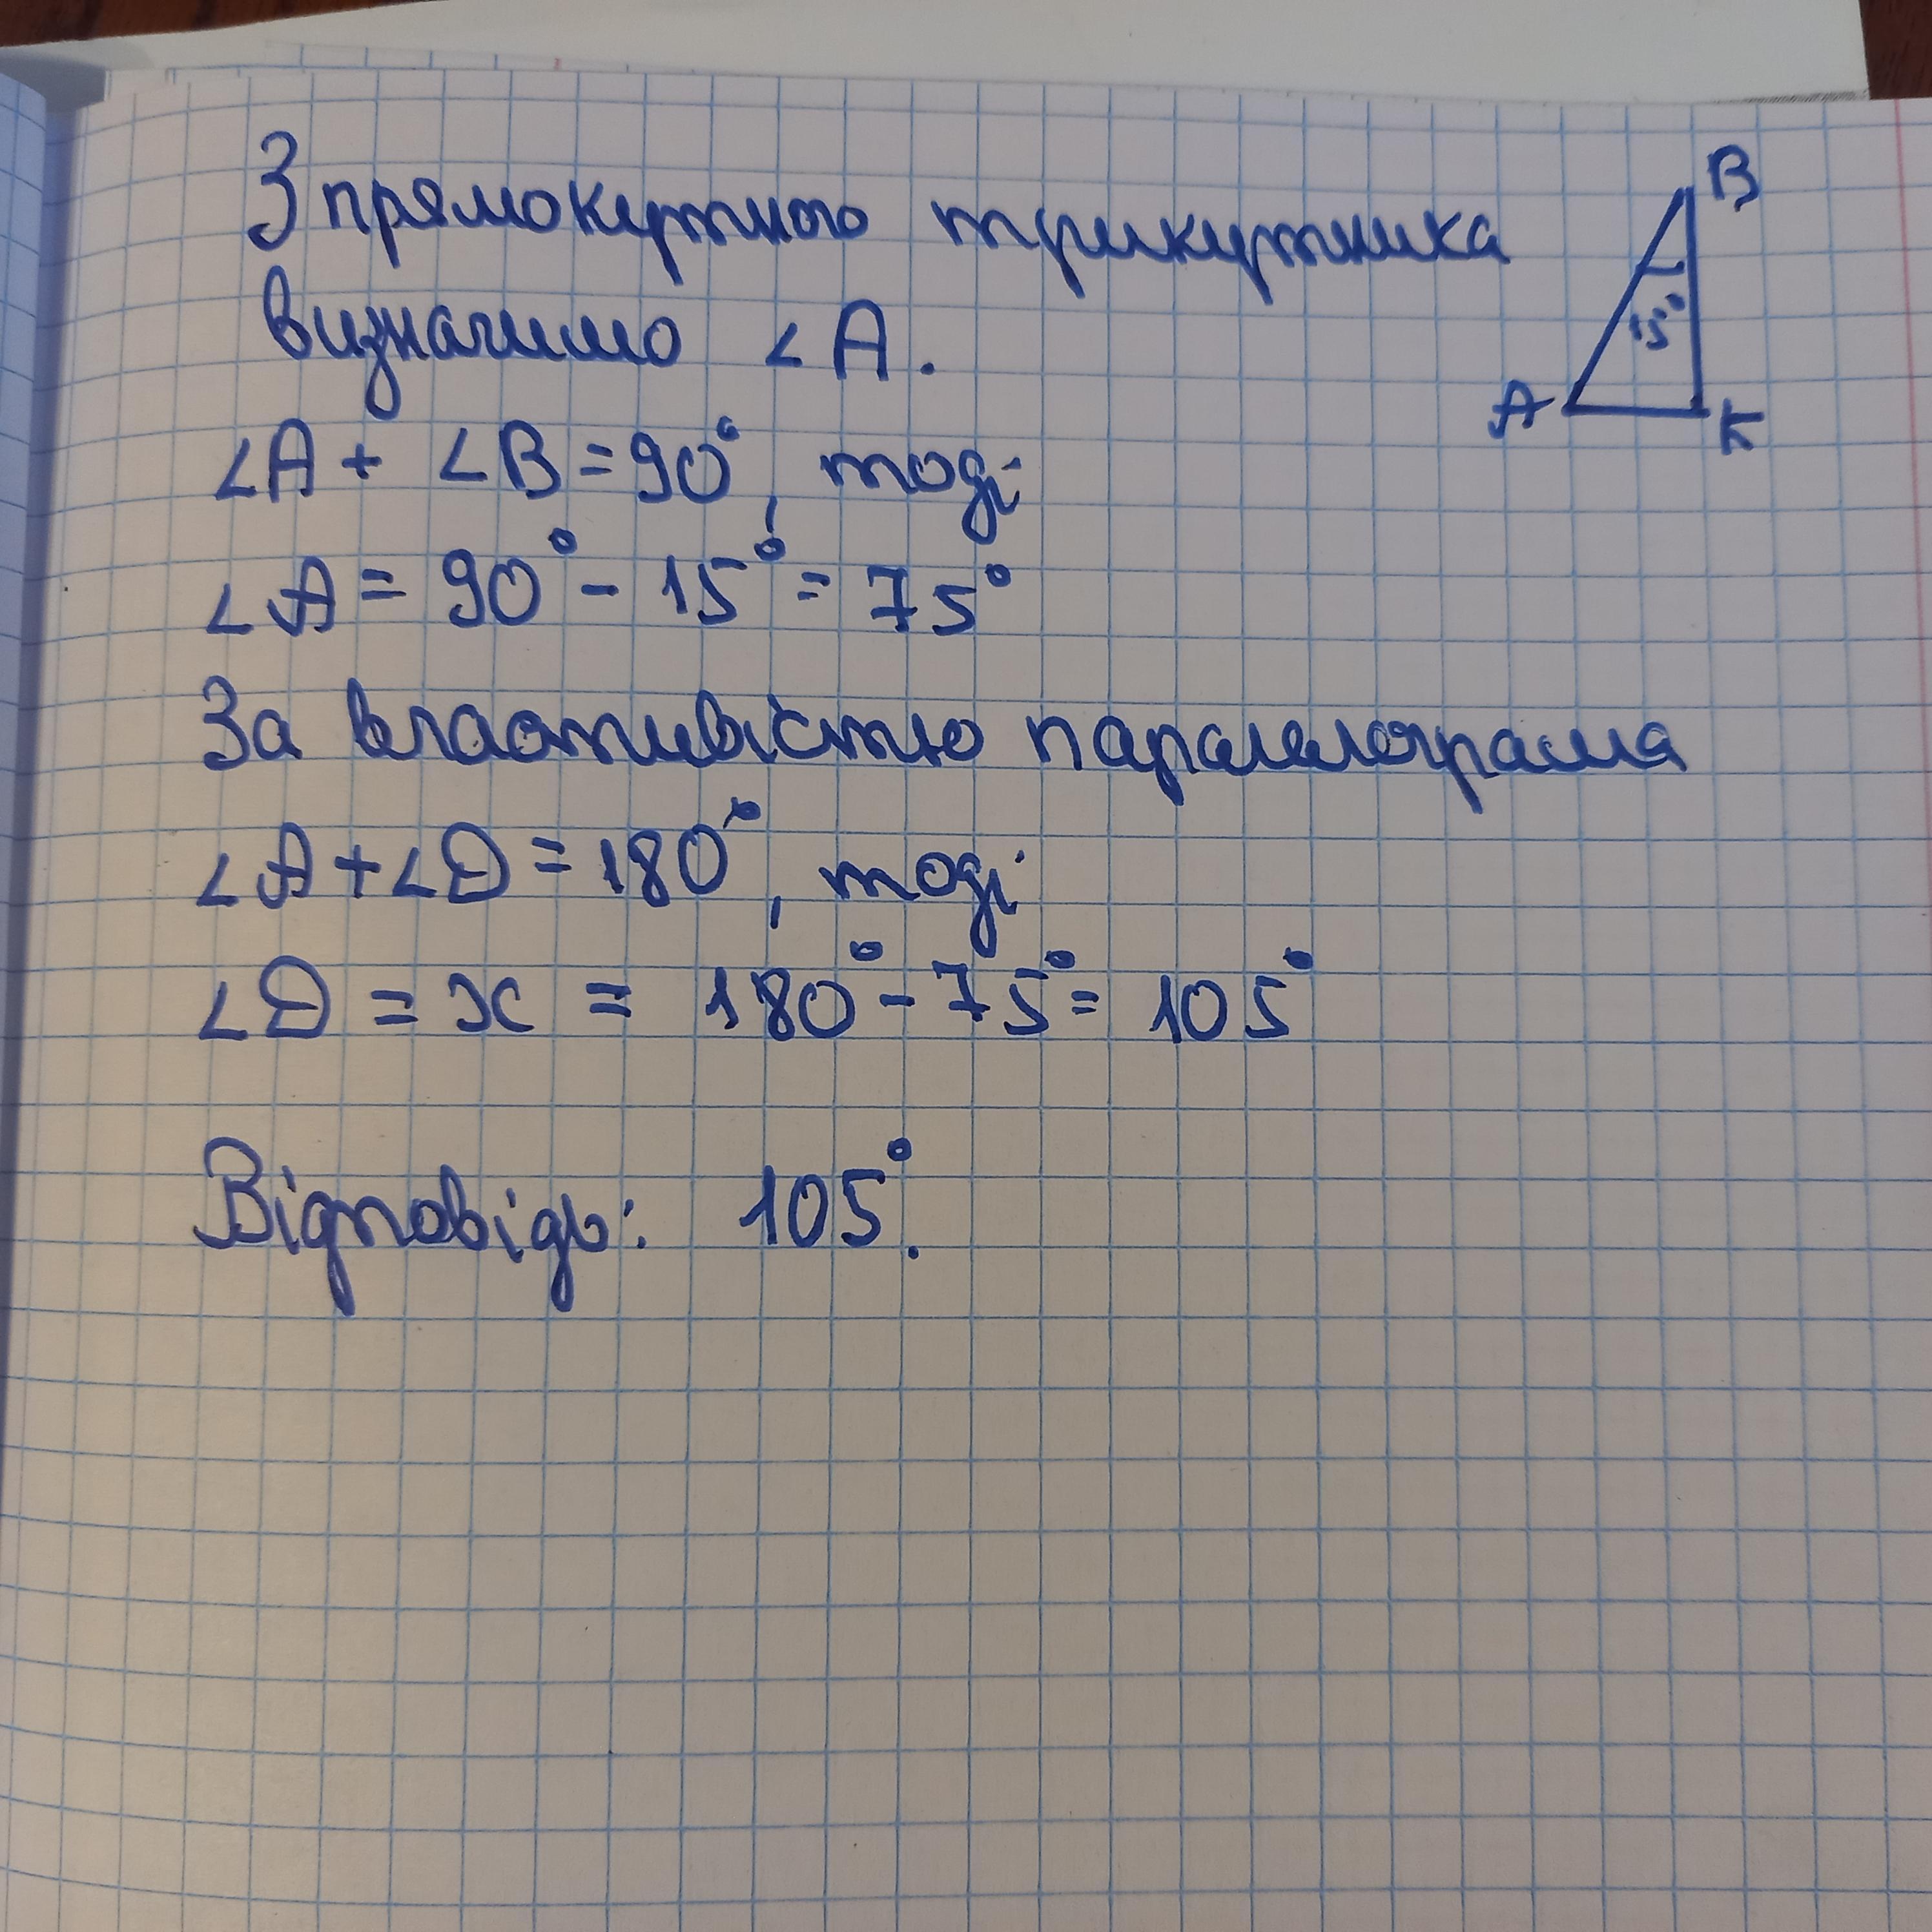 З прямокутного трикутника
визначимо ∠A.
∠A + ∠B = 90°, тоді
∠A = 90° - 15° = 75°
За властивістю паралелограма
∠A + ∠D = 180°, тоді
∠D = x = 180° - 75° = 105°
Відповідь: 105°.
B
15°
A
K